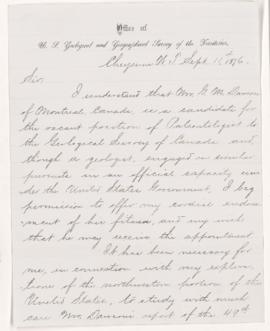 Office of
U. S. Geological and Geographical Survey of the Territories,
Cheyenne W. T. Sept. 11th 1876.
Sir,
I understand that Mr. G. M. Dawson
of Montreal, Canada, is a candidate for
the vacant position of Paleontologist to
the Geological Survey of Canada and
though a geologist, engaged in similar
pursuits in an official capacity un-
der the United States Government, I beg
permission to offer my cordial endorse-
ment of his fitness, and my wish
that he may receive the appointment.
It has been necessary for
me, in connection with my explora-
tions of the northwestern portion of the
United States, to study with much
care Mr. Dawson's report of the 49th